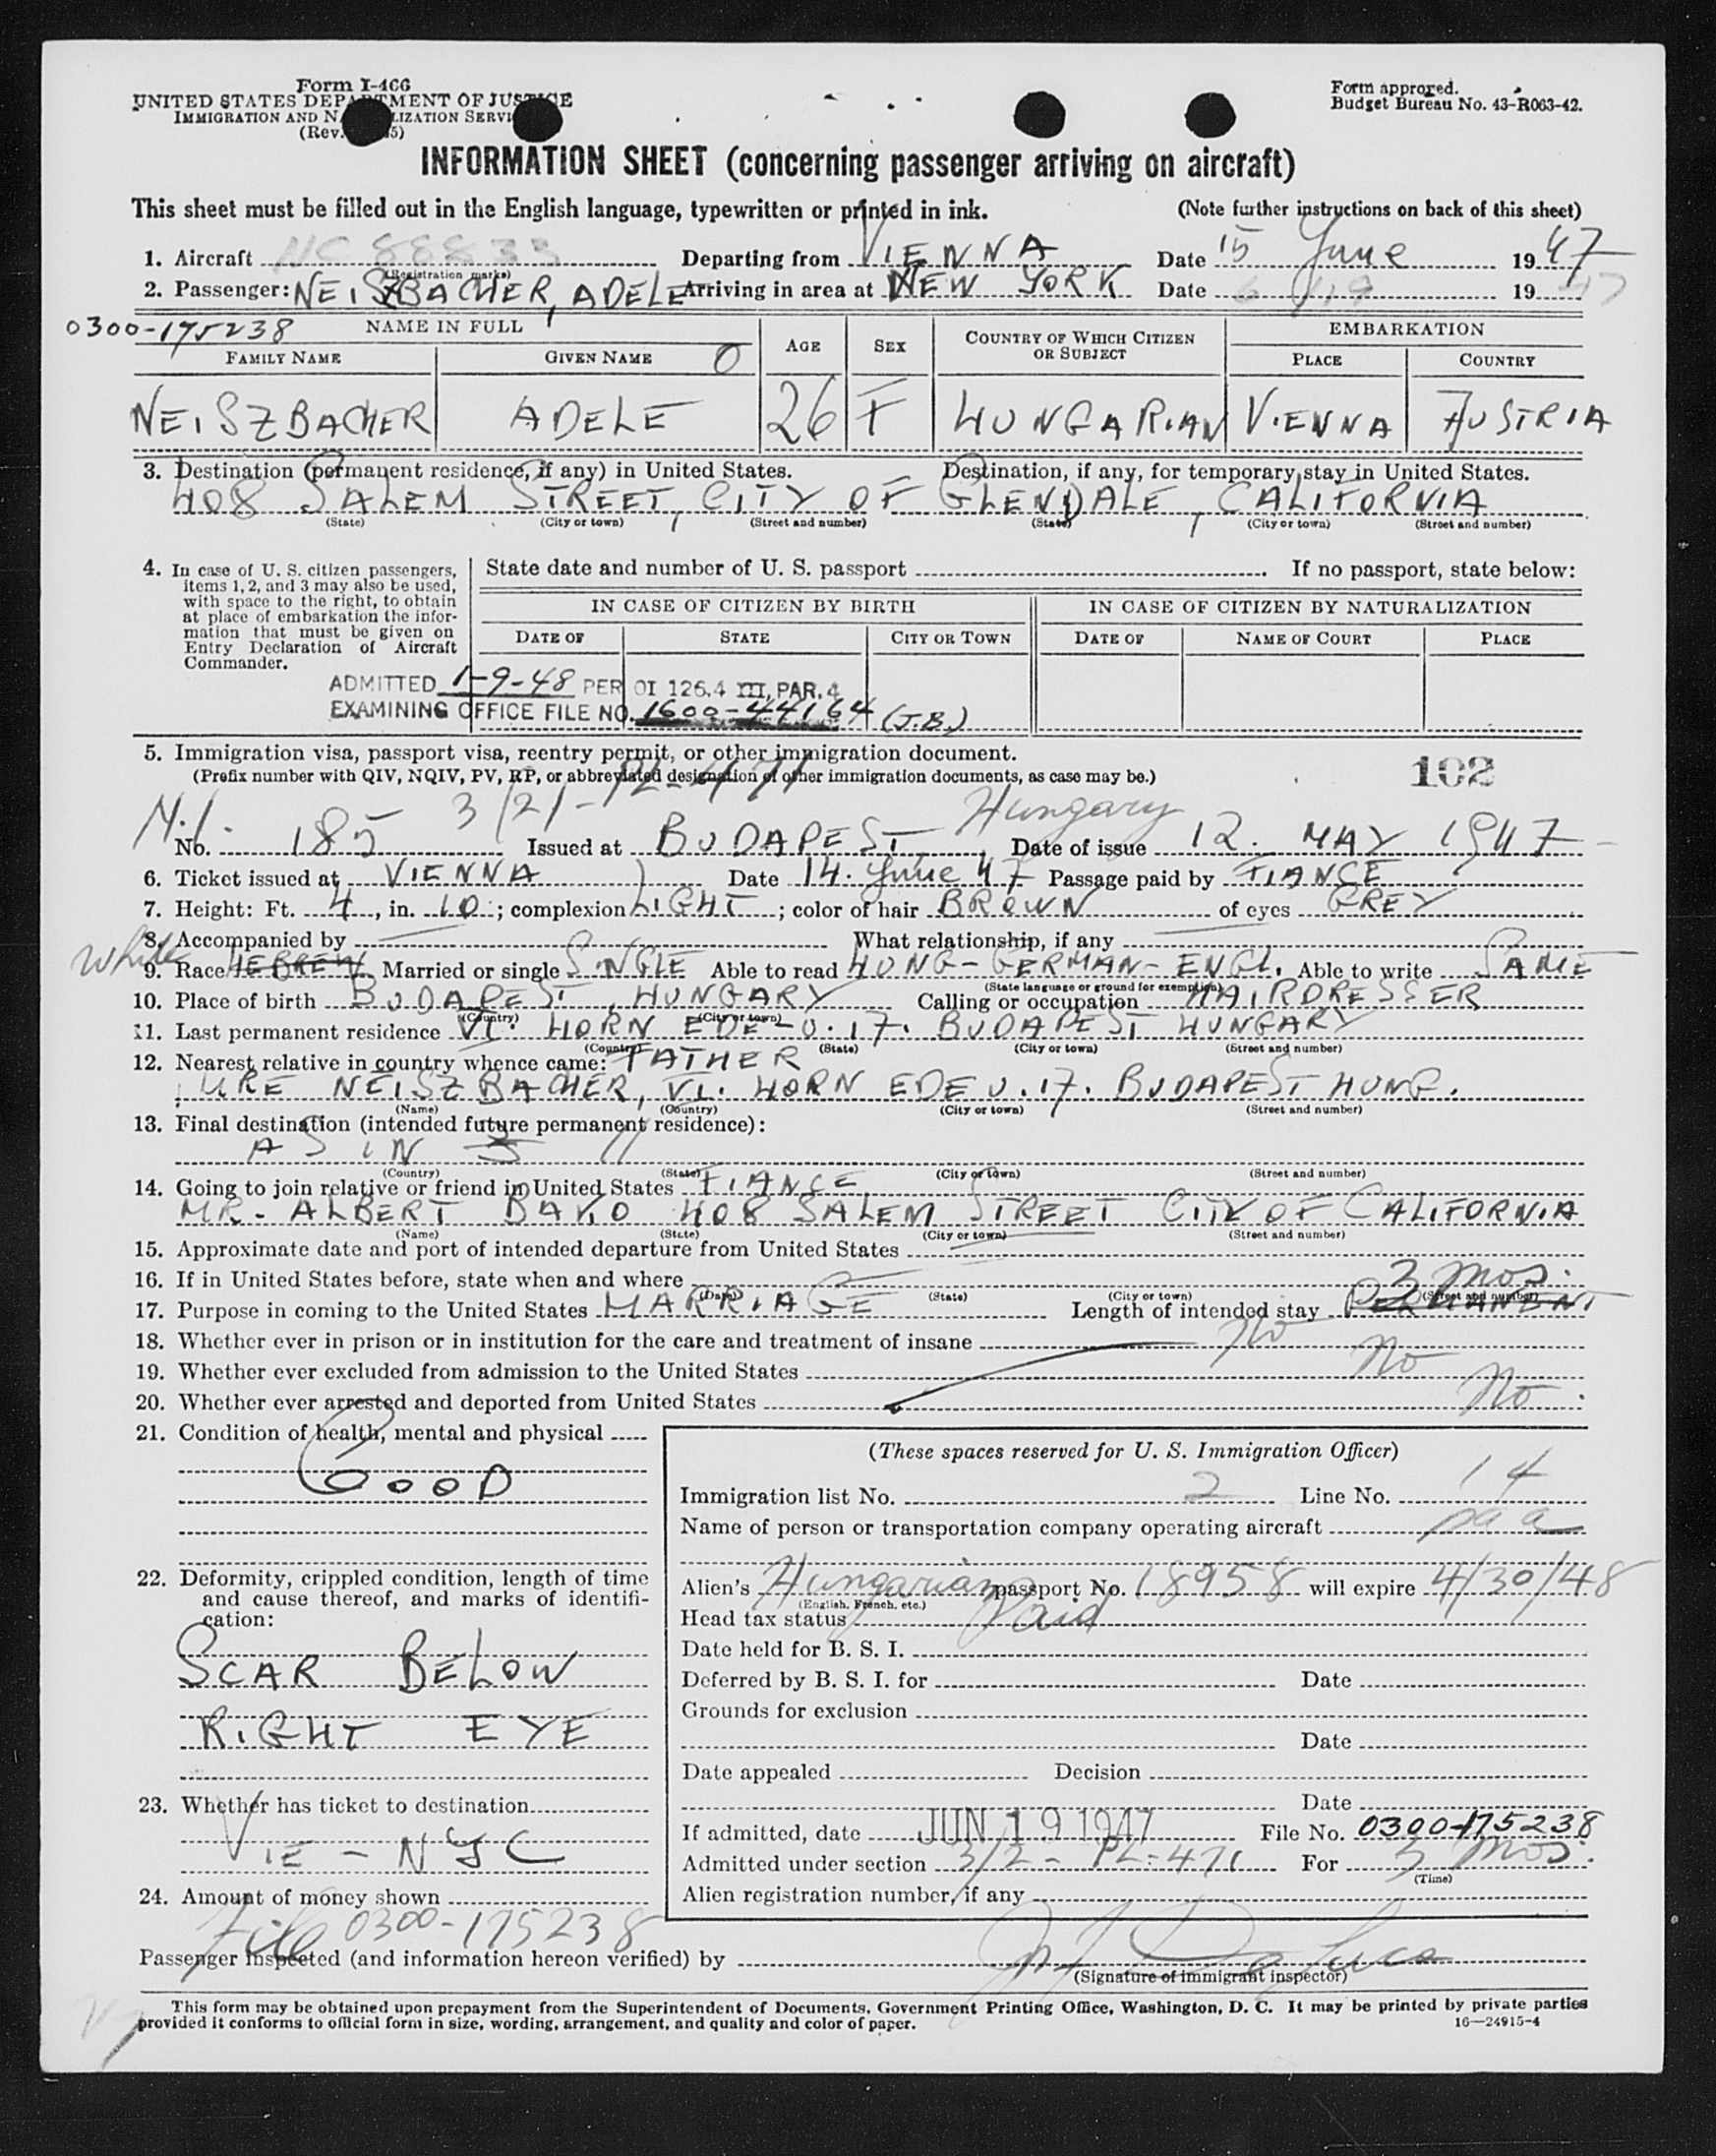 Form I-466
UNITED STATES DEPARTMENT OF JUSTICE
IMMIGRATION AND NATURALIZATION SERVICE
(Rev. 5)
Form approved.
Budget Bureau No. 43-R063-42.
INFORMATION SHEET (concerning passenger arriving on aircraft)
This sheet must be filled out in the English language, typewritten or printed in ink. (Note further instructions on back of this sheet)
1. Aircraft NC 88833 Departing from VIENNA Date 15 June 1947
(Registration marks)
2. Passenger: NEISZBACHER, ADELE Arriving in area at NEW YORK Date 6 19 1947
0300-175238 NAME IN FULL AGE SEX COUNTRY OF WHICH CITIZEN OR SUBJECT EMBARKATION
FAMILY NAME GIVEN NAME 0 PLACE COUNTRY
NEISZBACHER ADELE 26 F HUNGARIAN VIENNA AUSTRIA
3. Destination (permanent residence, if any) in United States. Destination, if any, for temporary stay in United States.
408 SALEM STREET, CITY OF GLENDALE, CALIFORNIA
(State) (City or town) (Street and number) (State) (City or town) (Street and number)
4. In case of U. S. citizen passengers, items 1, 2, and 3 may also be used, with space to the right, to obtain at place of embarkation the information that must be given on Entry Declaration of Aircraft Commander.
State date and number of U. S. passport If no passport, state below:
IN CASE OF CITIZEN BY BIRTH IN CASE OF CITIZEN BY NATURALIZATION
DATE OF STATE CITY OR TOWN DATE OF NAME OF COURT PLACE
ADMITTED 1-9-48 PER OI 126.4 III, PAR. 4
EXAMINING OFFICE FILE NO. 1600-44164 (J.B.)
5. Immigration visa, passport visa, reentry permit, or other immigration document.
(Prefix number with QIV, NQIV, PV, RP, or abbreviated designation of other immigration documents, as case may be.) 102
3/2/-PL-471 Hungary
No. 185 Issued at BUDAPEST Date of issue 12. MAY 1947
6. Ticket issued at VIENNA Date 14. June 47 Passage paid by FIANCE
7. Height: Ft. 4, in. 10; complexion LIGHT; color of hair BROWN of eyes GREY
8. Accompanied by What relationship, if any
White
9. Race HEBREW Married or single SINGLE Able to read HUNG-GERMAN-ENGL. Able to write SAME
(State language or ground for exemption)
10. Place of birth BUDAPEST, HUNGARY Calling or occupation HAIRDRESSER
(Country) (City or town)
11. Last permanent residence VI. HORN EDE-U. 17. BUDAPEST HUNGARY
(Country) (State) (City or town) (Street and number)
12. Nearest relative in country whence came: FATHER
URE NEISZBACHER, VI. HORN EDE U. 17. BUDAPEST HUNG.
(Name) (Country) (City or town) (Street and number)
13. Final destination (intended future permanent residence):
AS IN 3
(Country) (State) (City or town) (Street and number)
14. Going to join relative or friend in United States FIANCE
MR. ALBERT DAVID 408 SALEM STREET CITY OF CALIFORNIA
(Name) (State) (City or town) (Street and number)
15. Approximate date and port of intended departure from United States
16. If in United States before, state when and where
(Date) (State) (City or town) (Street and number)
3 mos.
17. Purpose in coming to the United States MARRIAGE Length of intended stay PERMANENT
18. Whether ever in prison or in institution for the care and treatment of insane no
19. Whether ever excluded from admission to the United States No
20. Whether ever arrested and deported from United States No
21. Condition of health, mental and physical
GOOD
22. Deformity, crippled condition, length of time and cause thereof, and marks of identification:
SCAR BELOW
RIGHT EYE
23. Whether has ticket to destination
VIE - NYC
24. Amount of money shown
(These spaces reserved for U. S. Immigration Officer)
Immigration list No. 2 Line No. 14
Name of person or transportation company operating aircraft paa
Alien's Hungarian passport No. 18958 will expire 4/30/48
(English, French, etc.)
Head tax status Paid
Date held for B. S. I.
Deferred by B. S. I. for Date
Grounds for exclusion
Date
Date appealed Decision
Date
If admitted, date JUN 19 1947 File No. 0300-175238
Admitted under section 3/2- PL-471 For 3 mos.
(Time)
Alien registration number, if any
File 0300-175238
Passenger inspected (and information hereon verified) by
(Signature of immigrant inspector)
This form may be obtained upon prepayment from the Superintendent of Documents, Government Printing Office, Washington, D. C. It may be printed by private parties
provided it conforms to official form in size, wording, arrangement, and quality and color of paper. 16—24915-4